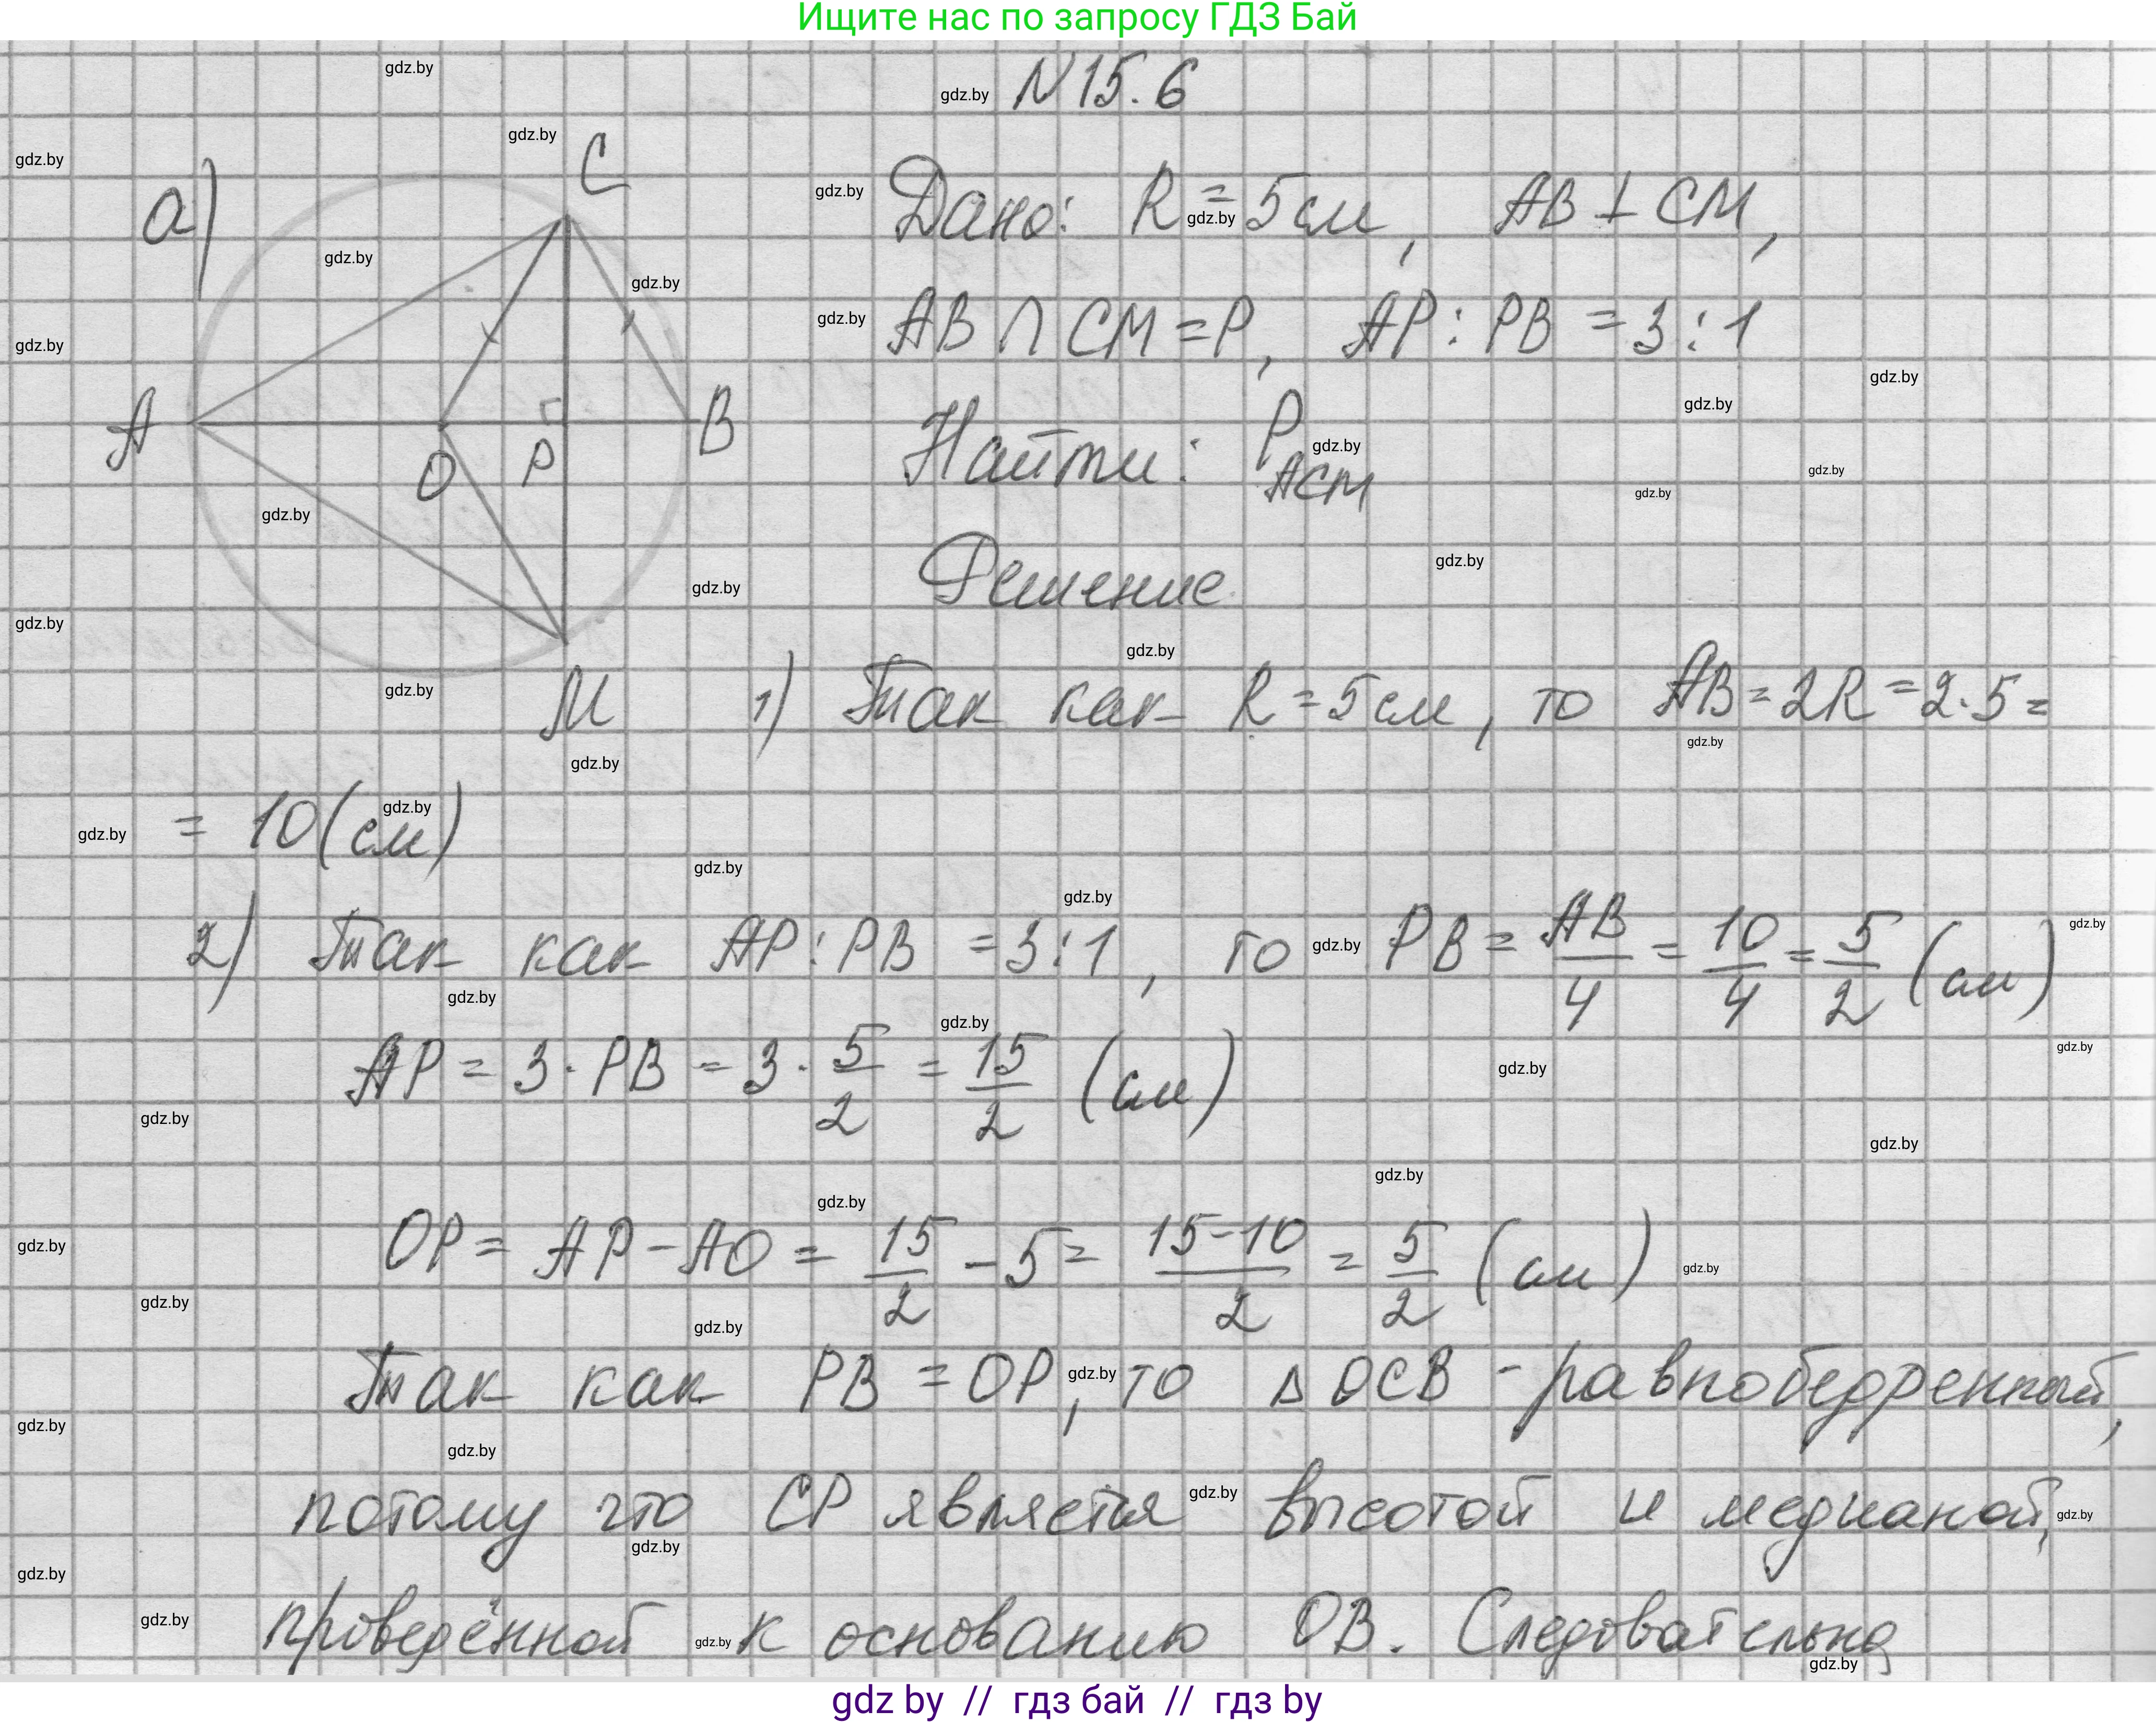 Ищите нас по запросу ГДЗ Бай
N 15.6
а)
C
A
O
P
B
M
Дано: R = 5 см, AB ⊥ CM,
AB ∩ CM = P, AP : PB = 3 : 1
Найти: P ACM
Решение
1) Так как R = 5 см, то AB = 2R = 2·5 =
= 10 (см)
2) Так как AP : PB = 3 : 1, то PB = AB/4 = 10/4 = 5/2 (см)
AP = 3 · PB = 3 · 5/2 = 15/2 (см)
OP = AP - AO = 15/2 - 5 = 15-10/2 = 5/2 (см)
Так как PB = OP, то Δ OCB - равнобедренный,
потому что CP является высотой и медианой,
проведённой к основанию OB. Следовательно
gdz by // гдз бай // гдз by